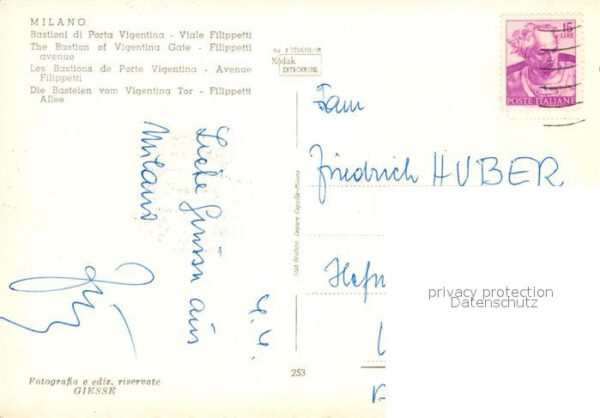 MILANO
Bastioni di Porta Vigentina - Viale Filippetti
The Bastion of Vigentina Gate - Filippetti
avenue
Les Bastions de Porte Vigentina - Avenue
Filippetti
Die Basteien vom Vigentina Tor - Filippetti
Allee
Kodak
EKTACHROME
15
LIRE
POSTE ITALIANE
Fam
Friedrich HUBER.
Hefn
privacy protection
Datenschutz
Liebe Grüsse aus
Milano
253
Fotografia e ediz. riservate
GIESSE